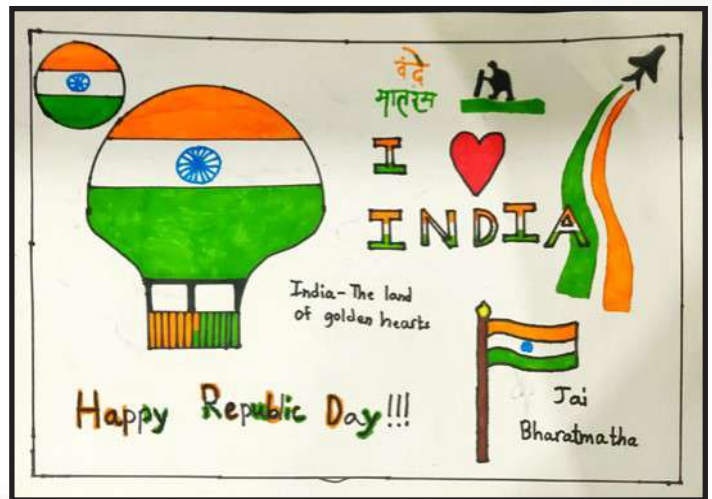 वंदे
मातरंम
I
INDIA
India - The land
of golden hearts
Happy Republic Day!!!
Jai
Bharatmatha